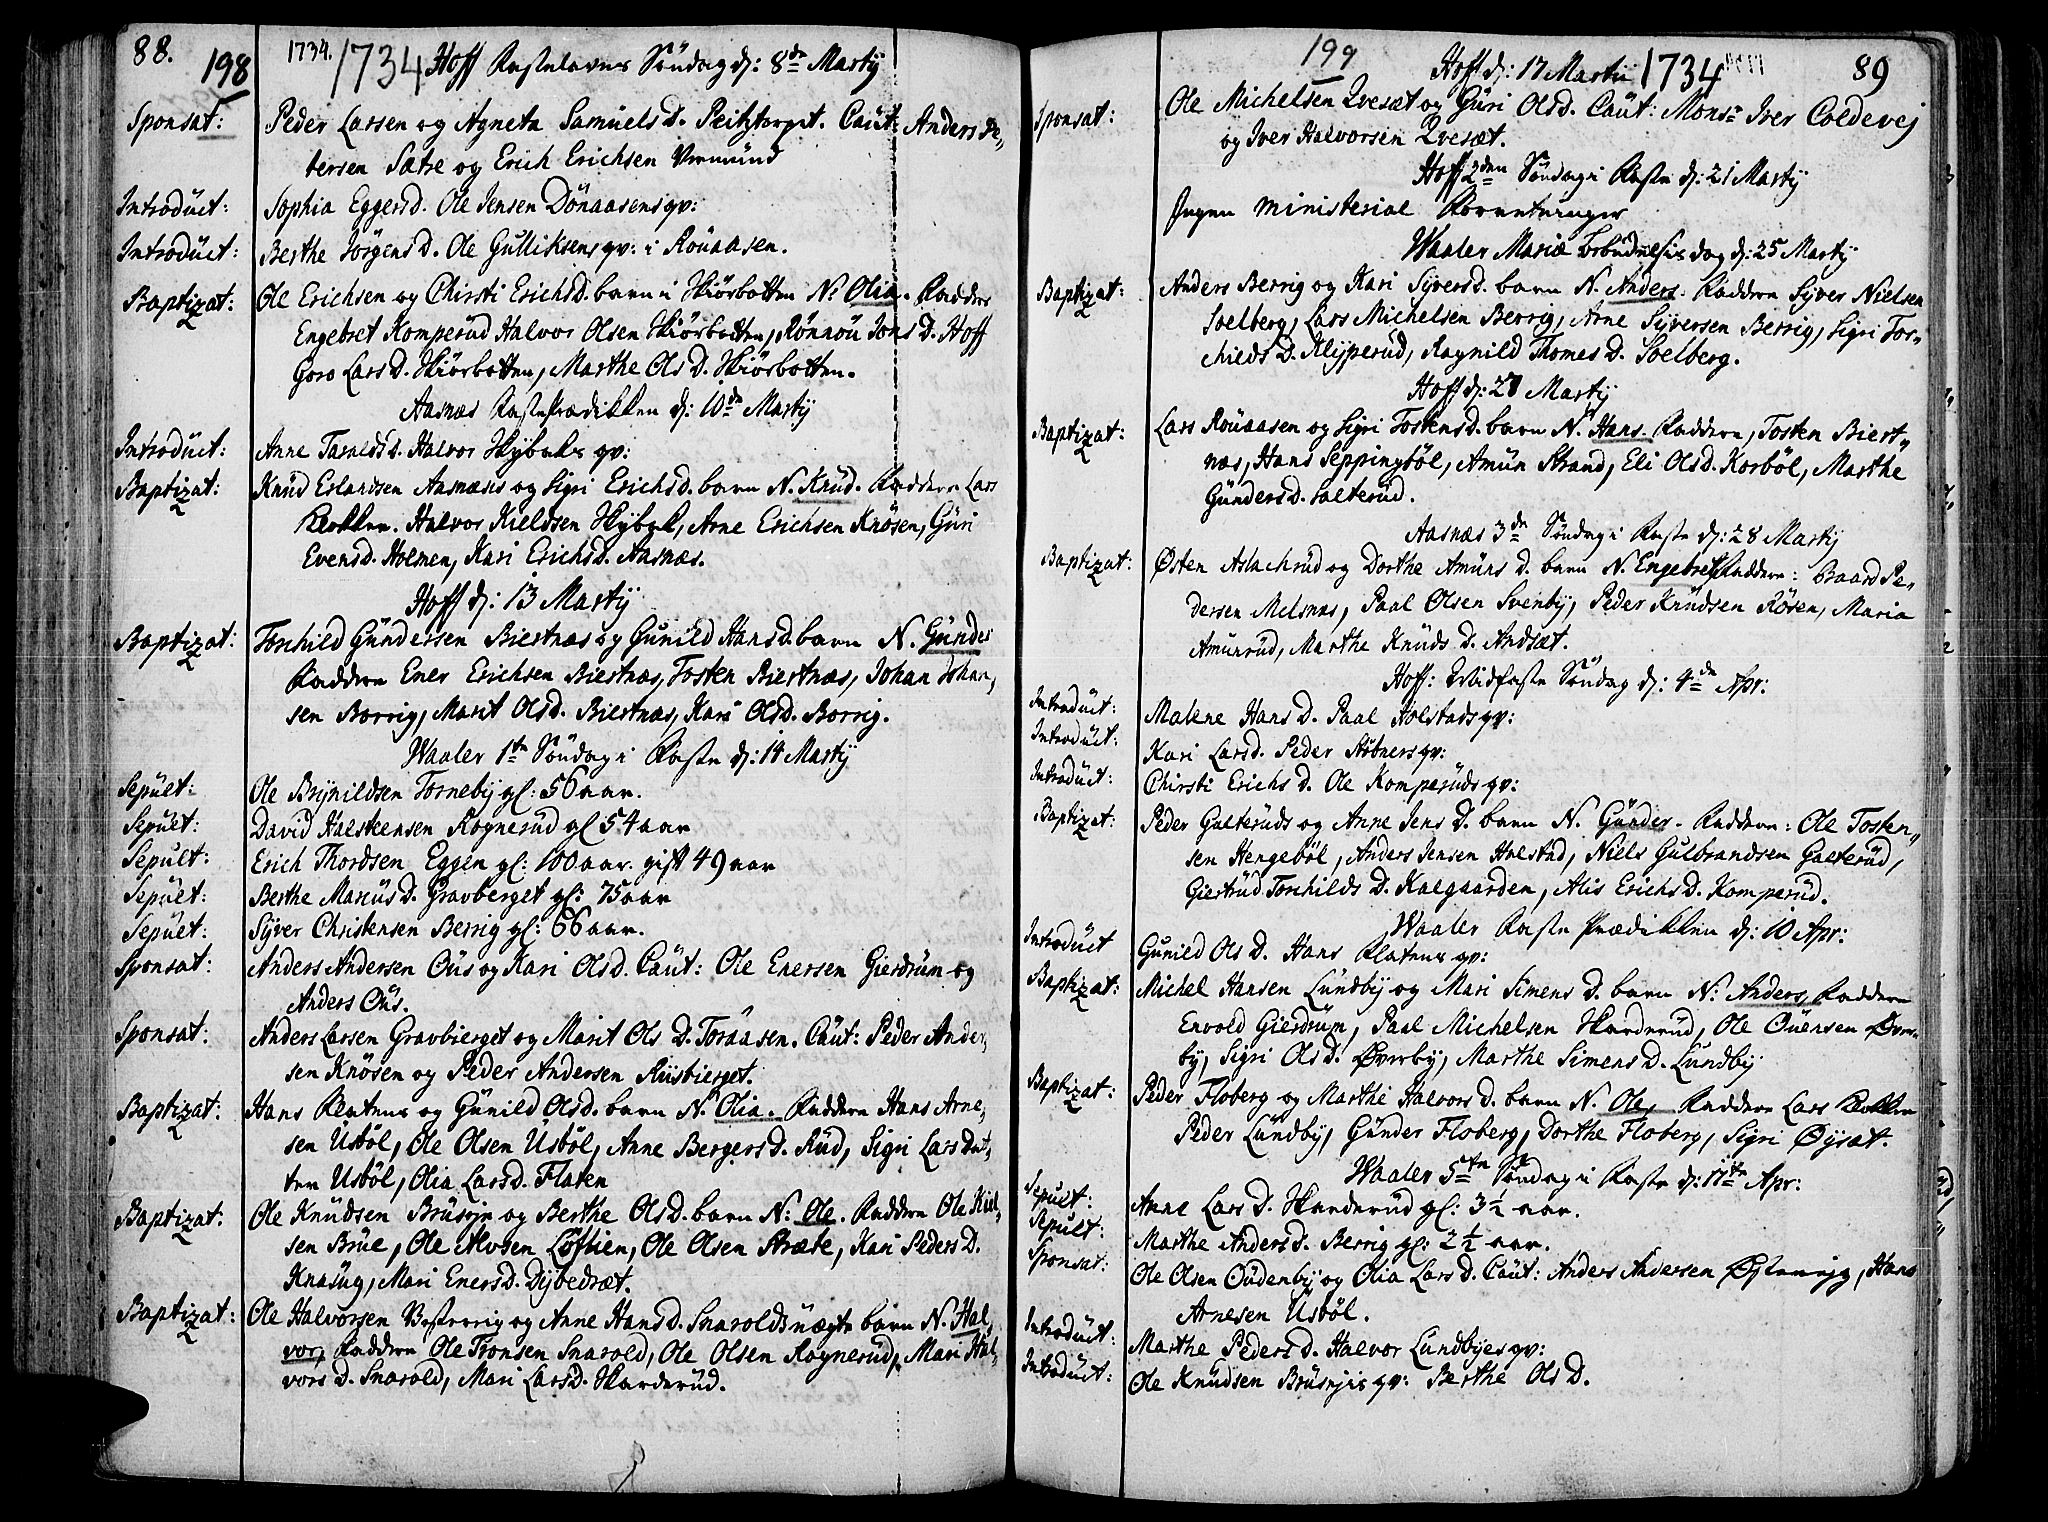 88. 198 1734. 1734 Hoff Fastelavns Söndag d: 8de Martij
Sponsat: Peder Larsen og Agneta Samuels D. Peitztorpet. Caut: Anders Pe-
tersen Sætre og Erich Erichsen Vermund
Introduct: Sophia Eggersd. Ole Jensen Dönaasens qv:
Introduct: Berthe Jörgens D. Ole Gulliksens qv: i Rouaasen.
Baptizat: Ole Erichsen og Chirsti Erichsd. barn i Skiörbotten N: Olia. Faddere
Engebret Komperud Halvor Olsen Skiörbotten, Rönnou Jons D. Hoff
Goro Lars D. Skiörbotten, Marthe Ols D. Skiörbotten.
Aasnæs Fasteprædikken d: 10de Martij
Introduct: Anne Taraldsd. Halvor Skybaks qv:
Baptizat: Knud Erlandsen Aasnæses og Sigri Erichsd. barn N. Knud. Faddere Lars
Klokker. Halvor Kieldsen Skybak, Arne Erichsen Knösen, Guri
Evensd. Holmen, Kari Erichsd. Aasnæs.
Hoff d: 13 Martij
Baptizat: Torchild Gundersen Biertnæs og Gunild Hansd. barn N. Gunder
Faddere Ener Erichsen Biertnæs, Tosten Biertnæs, Johan Johan-
sen Borrig, Marit Olsd. Biertnæs, Kari Olsd. Borrig.
Waaler 1te Söndag i Faste d: 14 Martij
Sepult: Ole Brynildsen Torneby gl: 56 aar.
Sepult: David Halsteensen Rognerud gl 54 aar
Sepult: Erich Thordsen Eggen gl: 100 aar. gift 49 aar
Sepult: Berthe Marcus D. Gravberget gl: 75 aar
Sepult: Syver Christensen Berrig gl: 66 aar.
Sponsat: Anders Andersen Ous og Kari Olsd. Caut: Ole Enersen Gierdrum og
Anders Ous.
Sponsat: Anders Larsen Gravbierget og Marit Ols D. Toraasen. Caut: Peder Ander-
sen Knösen og Peder Andersen Riisbierget.
Baptizat: Hans Flatens og Gunild Olsd. barn N. Olia. Faddere Hans Arne-
sen Usböl, Ole Olsen Usböl, Anne Bergersd. Rud, Sigri Lars Dat-
ter Usböl, Olia Larsd. Flaten
Baptizat: Ole Knudsen Brusye og Berthe Olsd. barn N: Ole. Faddere Ole Kiel-
sen Brue, Ole Alvsen Löftien, Ole Olsen Stræte, Kari Peders D.
Knasug, Mari Enersd. Dybedræt.
Baptizat: Ole Halvorsen Vesterrig og Anne Hansd. Snarolds uægte barn N. Hal-
vor, Faddere Ole Tronsen Snarold, Ole Olsen Rognerud, Mari Hal-
vors D. Snarold, Mari Larsd. Skarderud.
199 Hoff d: 17 Martij 1734 89
Sponsat: Ole Michelsen Qvesæt og Guri Olsd. Caut: Monsr Iver Coldevej
og Iver Halvorsen Qvesæt.
Hoff 2den Söndag i Faste d: 21 Martij
Ingen ministerial Forretninger
Waaler Mariæ Bebudelses dag d: 25 Martij
Baptizat: Anders Berrig og Kari Syversd. barn N. Anders. Faddere Syver Nielsen
Soelberg, Lars Michelsen Berrig, Arne Syversen Berrig, Sigri Tor-
chieds D. Klyperud, Ragnild Thomes D. Soelberg.
Hoff d: 27 Martij
Baptizat: Lars Rouaasen og Sigri Tostensd. barn N. Hans. Faddere, Tosten Biert-
næs, Hans Seppingböl, Amun Strand, Eli Olsd. Korböl, Marthe
Gunders D. Salterud.
Aasnæs 3de Söndag i Faste d: 28 Martij
Baptizat: Østen Aslachrud og Dorthe Amuns D. barn N. Engebret. Faddere: Baard Pe-
dersen Melsnæs, Paal Olsen Svenby, Peder Knudsen Rösen, Maria
Amunrud, Marthe Knuds D. Andsæt.
Hoff: Midfaste Söndag d: 4de Apr:
Introduct: Malene Hans D. Paal Holstads qv:
Introduct: Kari Larsd. Peder Stöbners qv:
Introduct: Chirsti Erichs D. Ole Komperuds qv:
Baptizat: Peder Galteruds og Anne Jens D. barn N. Gunder. Faddere: Ole Tosten-
sen Hengeböl, Anders Jensen Holstad, Niels Gulbrandsen Galterud,
Giertrud Torchilds D. Kalgaarden, Alis Erichs D. Komperud.
Waaler Faste Prædikken d: 10 Apr:
Introduct Gunild Ols D. Hans Flatens qv:
Baptizat: Michel Hansen Lundby og Mari Simens D. barn N: Anders, Faddere
Envold Gierdrum, Paal Michelsen Skarderud, Ole Ouensen Øver-
by, Sigri Olsd. Øverby, Marthe Simens D. Lundby
Baptizat: Peder Floberg og Marthe Halvors D. barn N. Ole, Faddere Lars Klokker
Peder Lundby, Gunder Floberg, Dorthe Floberg, Sigri Øysæt.
Waaler 5te Söndag i Faste d: 11te Apr:
Sepult: Anne Lars D. Skarderud gl: 3½ aar.
Sepult: Marthe Andersd. Berrig gl: 2½ aar.
Sponsat: Ole Olsen Oudenby og Olia Lars D. Caut: Anders Andersen Østenvig, Hans
Arnesen Usböl.
Introduct: Marthe Pedersd. Halvor Lundbyes qv:
Introduct: Ole Knudsen Brusyes qv: Berthe Ols D.